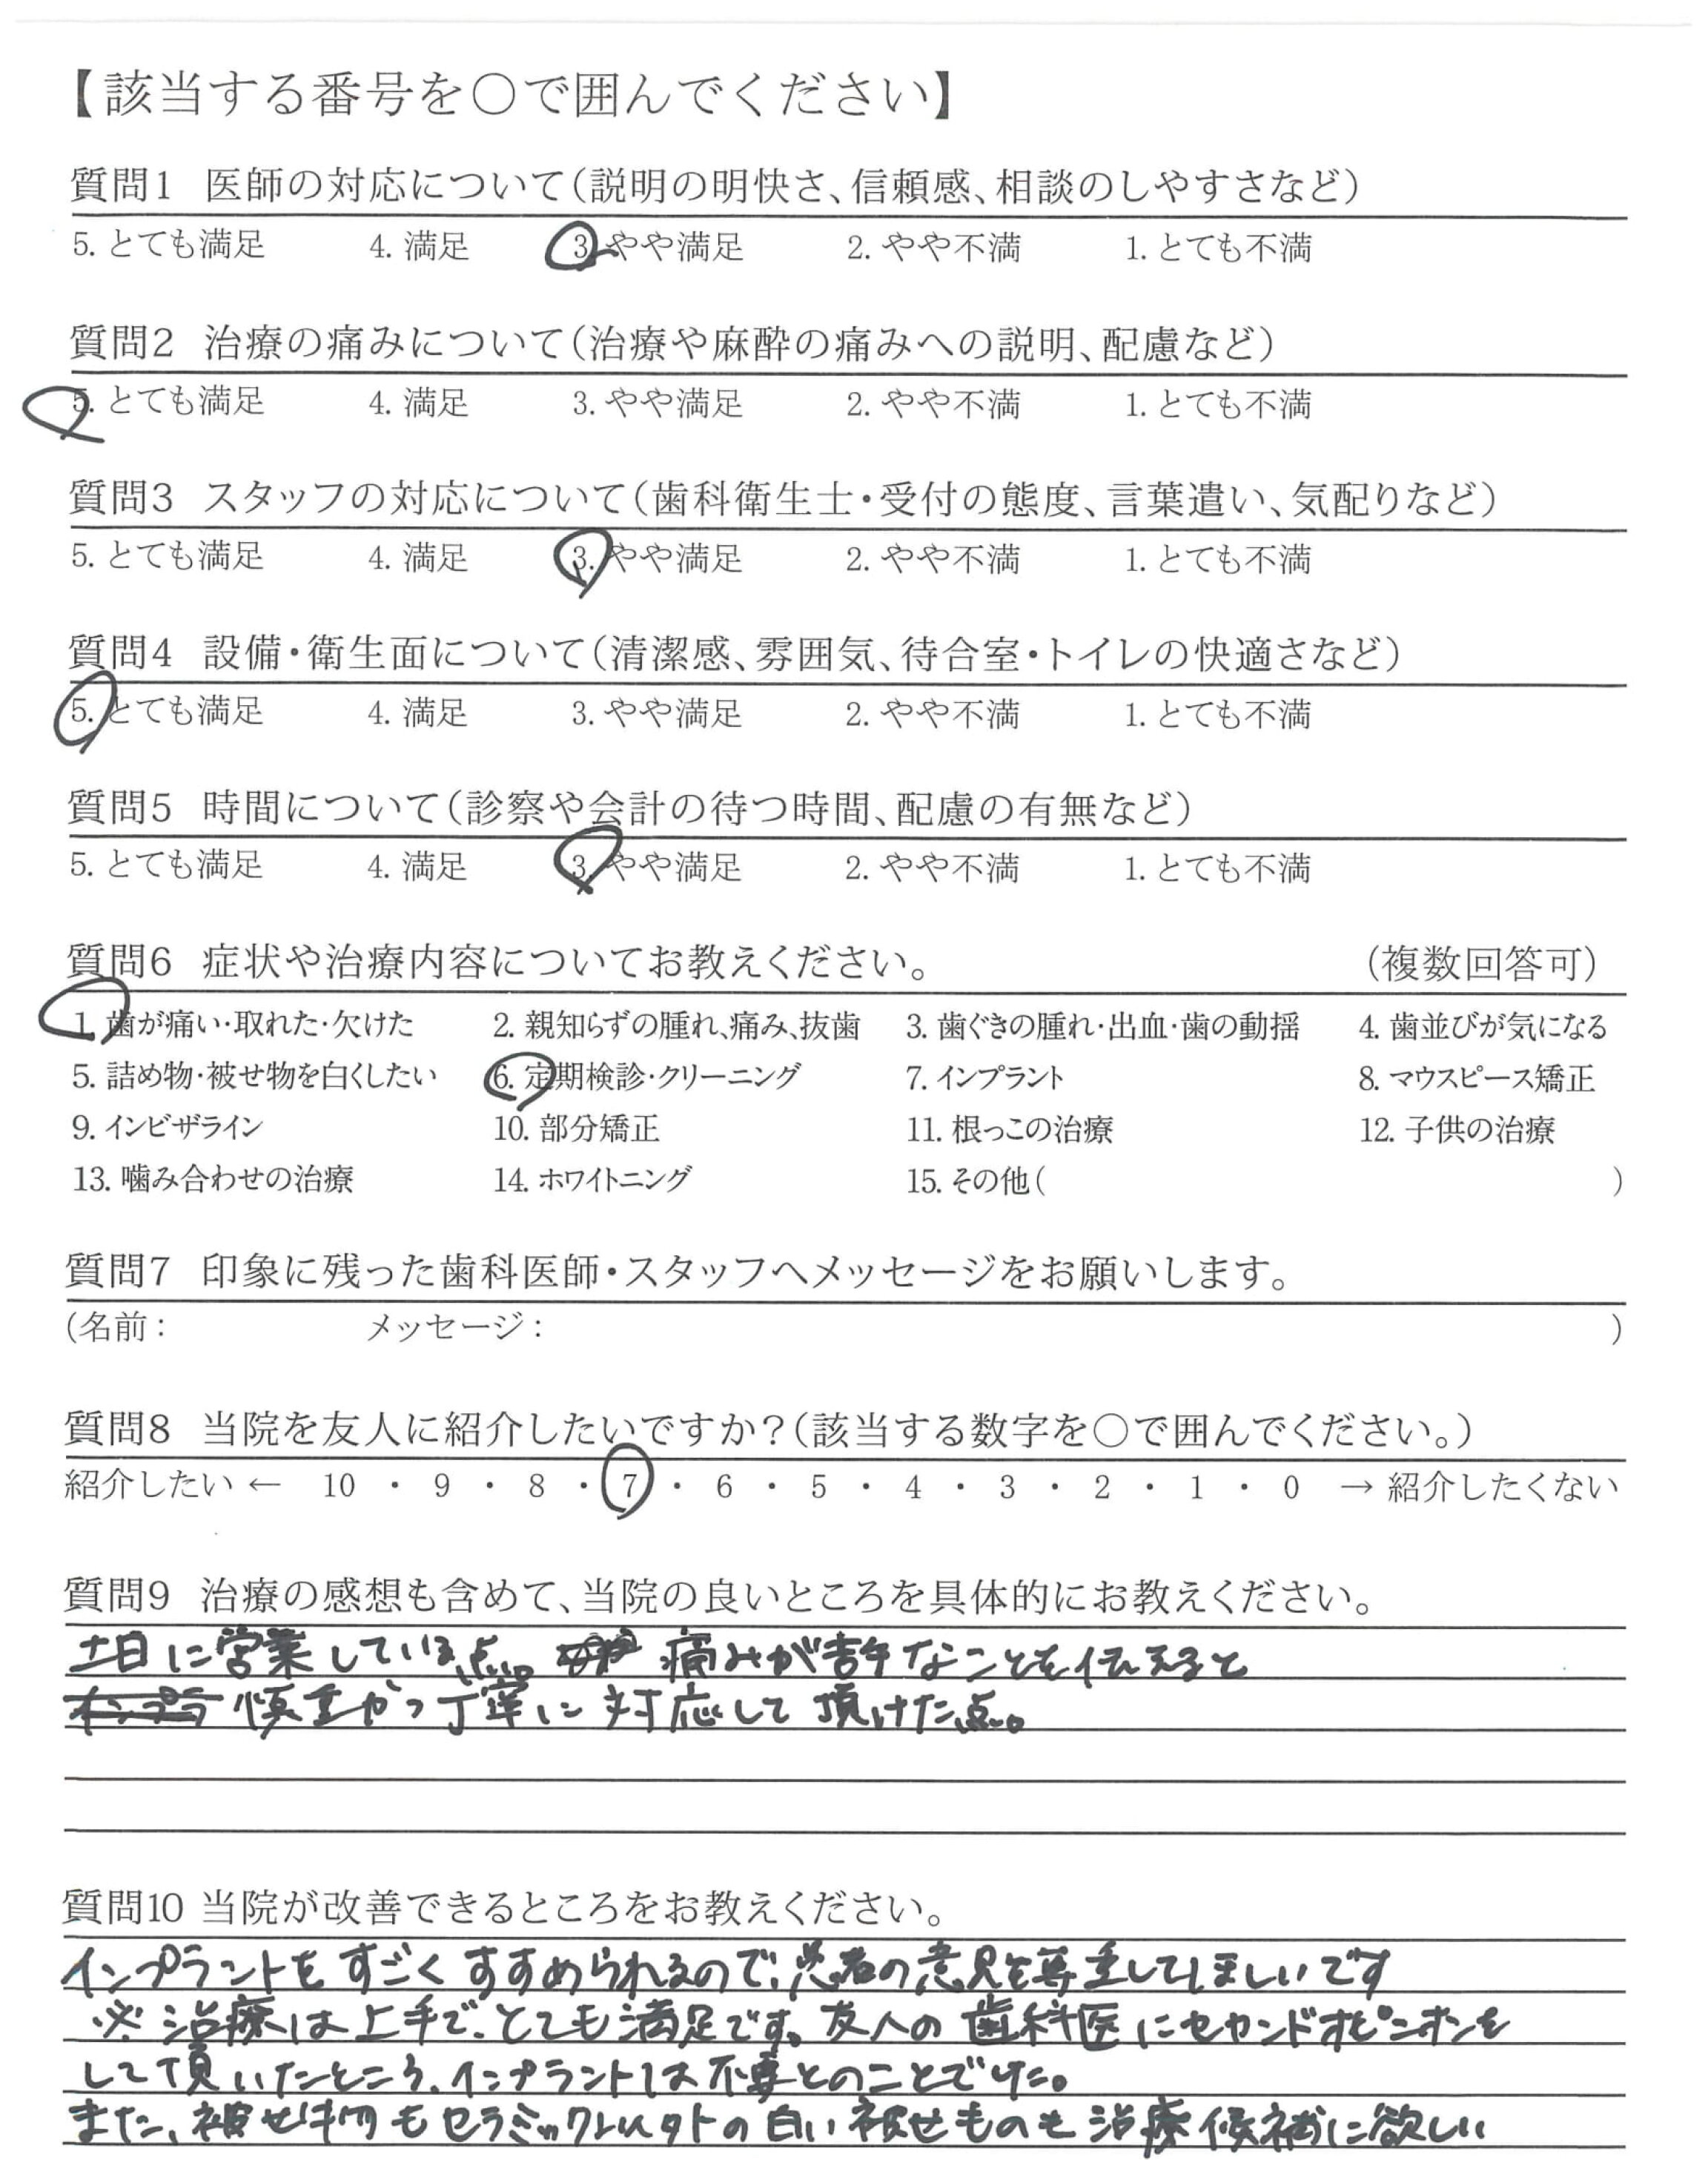 【該当する番号を〇で囲んでください】
質問1 医師の対応について(説明の明快さ、信頼感、相談のしやすさなど)
5. とても満足 4. 満足 3. やや満足 2. やや不満 1. とても不満
質問2 治療の痛みについて(治療や麻酔の痛みへの説明、配慮など)
5. とても満足 4. 満足 3. やや満足 2. やや不満 1. とても不満
質問3 スタッフの対応について(歯科衛生士・受付の態度、言葉遣い、気配りなど)
5. とても満足 4. 満足 3. やや満足 2. やや不満 1. とても不満
質問4 設備・衛生面について(清潔感、雰囲気、待合室・トイレの快適さなど)
5. とても満足 4. 満足 3. やや満足 2. やや不満 1. とても不満
質問5 時間について(診察や会計の待つ時間、配慮の有無など)
5. とても満足 4. 満足 3. やや満足 2. やや不満 1. とても不満
質問6 症状や治療内容についてお教えください。 (複数回答可)
1. 歯が痛い・取れた・欠けた 2. 親知らずの腫れ、痛み、抜歯 3. 歯ぐきの腫れ・出血・歯の動揺 4. 歯並びが気になる
5. 詰め物・被せ物を白くしたい 6. 定期検診・クリーニング 7. インプラント 8. マウスピース矯正
9. インビザライン 10. 部分矯正 11. 根っこの治療 12. 子供の治療
13. 噛み合わせの治療 14. ホワイトニング 15. その他( )
質問7 印象に残った歯科医師・スタッフへメッセージをお願いします。
(名前: メッセージ: )
質問8 当院を友人に紹介したいですか?(該当する数字を〇で囲んでください。)
紹介したい ← 10 ・ 9 ・ 8 ・ 7 ・ 6 ・ 5 ・ 4 ・ 3 ・ 2 ・ 1 ・ 0 → 紹介したくない
質問9 治療の感想も含めて、当院の良いところを具体的にお教えください。
土日に営業している点。 痛みが苦手なことを伝えると
慎重かつ丁寧に対応して頂けた点。
質問10 当院が改善できるところをお教えください。
インプラントをすごくすすめられるので、患者の意見を尊重してほしいです
※治療は上手で、とても満足です。友人の歯科医にセカンドオピニオンを
して頂いたところ、インプラントは不要とのことでした。
また、被せ物もセラミック以外の白い被せものも治療候補に欲しい